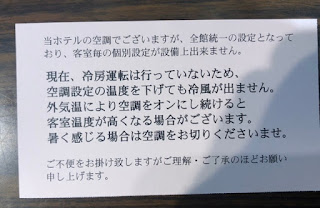 当ホテルの空調でございますが、全館統一の設定となって
おり、客室毎の個別設定が設備上出来ません。
現在、冷房運転は行っていないため、
空調設定の温度を下げても冷風が出ません。
外気温により空調をオンにし続けると
客室温度が高くなる場合がございます。
暑く感じる場合は空調をお切りくださいませ。
ご不便をお掛け致しますがご理解・ご了承のほどお願い
申し上げます。